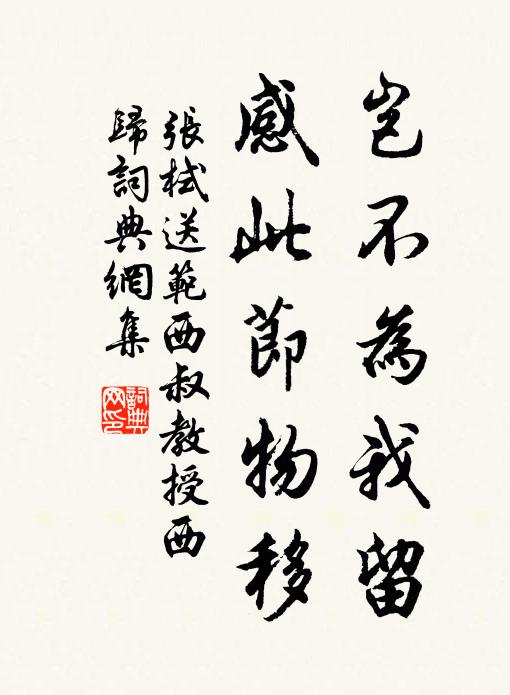 豈不為我留
感此節物移
張栻送範西叔教授西
歸詞典網集
詞典网印